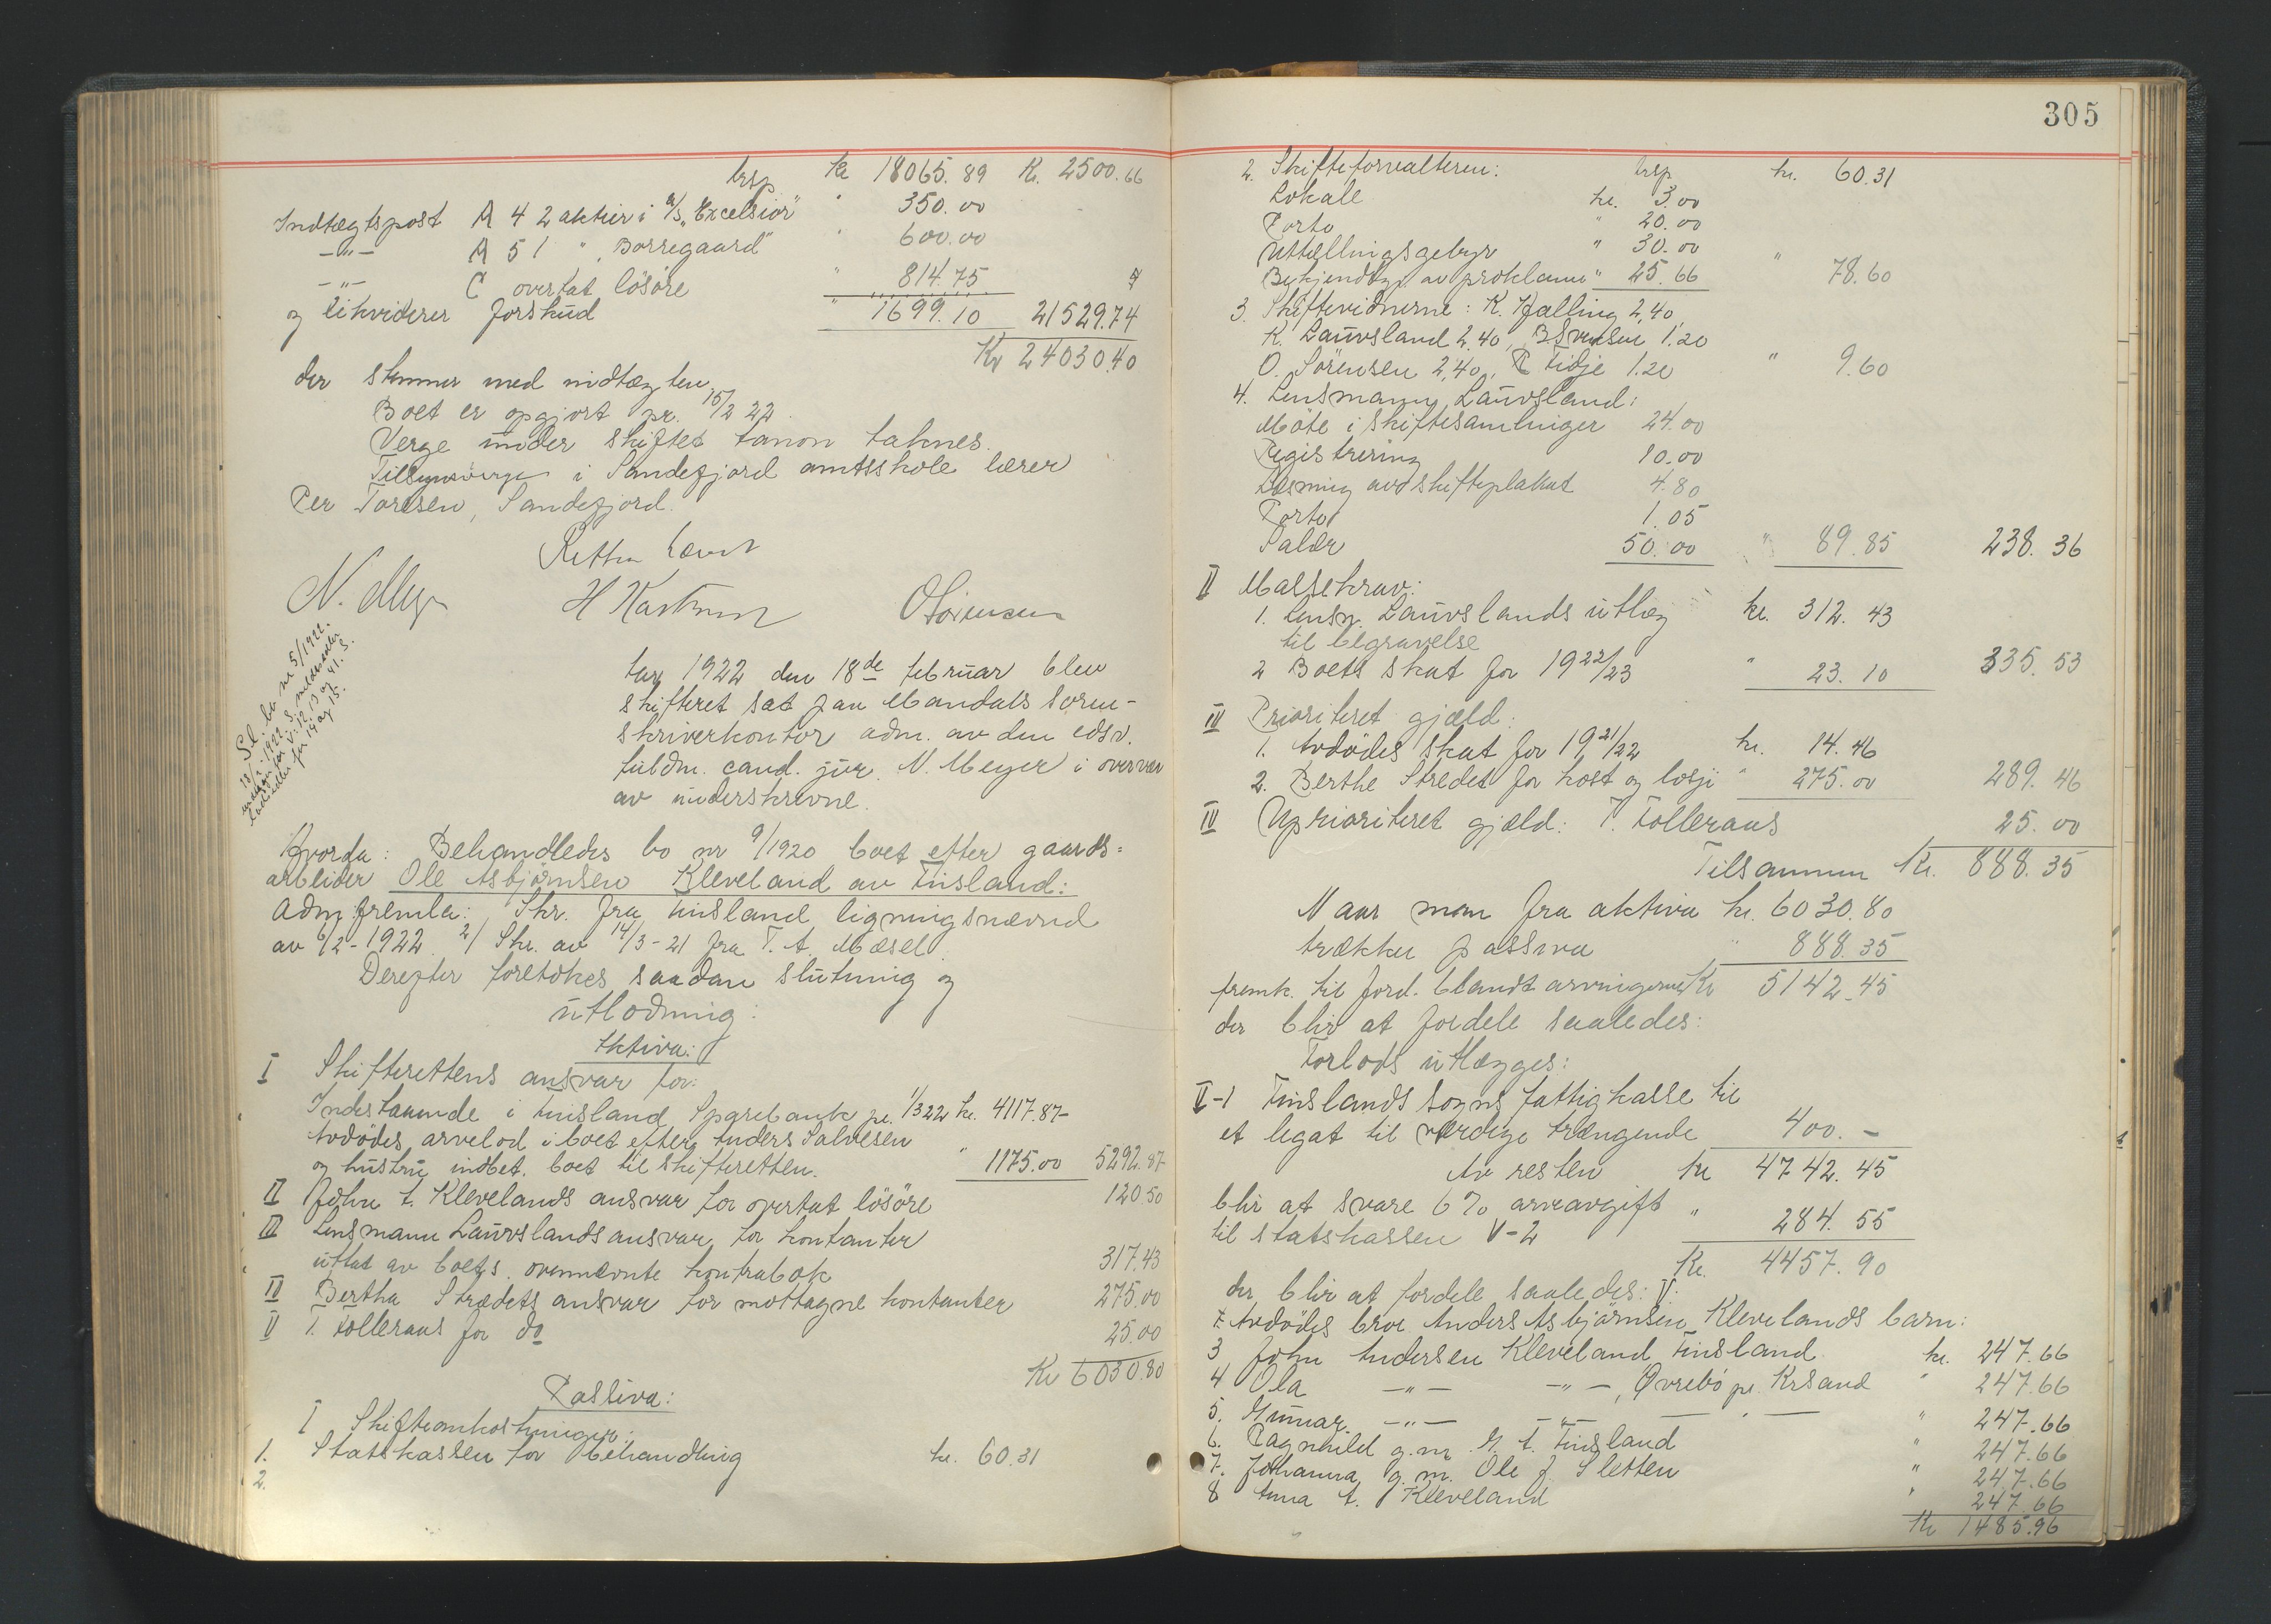 trsp. kr 18065.89 Kr. 2500.66
Indtægtspost A 4 2 aktier i A/S „Excelsior" " 350.00
—"— A 5 1 " „Borregaard" " 600.00
—"— C overtat lösöre " 814.75
og likviderer forskud " 1699.10 21529.74
Kr 24030.40
der stemmer med indtægten.
Boet er opgjort pr. 15/2 22.
Verge under skiftet
Tilsynsverge i Sandefjord amtsskole lærer
Per Toresen, Sandefjord.
Retten hævet
N. Meyer H Kastrup O Sörensen
Sl. bo nr 5/1922.
Aar 1922 den 18de februar blev
skifteret sat paa Mandals soren-
skriverkontor adm. av den edsv.
fuldm. cand. jur. N. Meyer i overvær
av underskrevne.
Hvorda: Behandledes bo nr 9/1920 boet efter gaards-
arbeider Ole Asbjörnsen Kleveland av Finsland:
Adm fremla: Skr. fra Finsland ligningsnævnd
av 6/2-1922 2/ Skr. av 14/3-21 fra T. A. Mæsel.
Derefter foretokes saadan slutning og
utlodning:
Aktiva:
I Skifterettens ansvar for:
Indestaaende i Finsland Sparebank pr. 1/3 22 kr. 4117.87
Avdödes arvelod i boet efter Anders Salvesen
og hustru indbet. boet til skifteretten. " 1175.00 5292.87
II John A. Klevelands ansvar for overtat lösöre 120.50
III Lensmann Lauvslands ansvar for kontanter
uttat av boets ovennævnte kontrabok 317.43
IV Bertha Strædets ansvar for mottagne kontanter 275.00
V T. Folleraas for do 25.00
Kr 6030.80
Passiva:
I Skifteomkostninger:
1. Statskassen for behandling kr. 60.31
2.
305
trsp kr. 60.31
2. Skifteforvalteren:
Lokale kr. 3.00
Porto " 20.00
Uttællingsgebyr " 30.00
Bekjendtgj. av proklama " 25.66 " 78.60
3. Skiftevidnerne: K. Kjælling 2,40,
K. Lauvsland 2.40, B Svensen 1.20
O. Sörensen 2,40, P. Tidje 1.20 " 9.60
4. Lensmann Lauvsland:
Möte i skiftesamlinger 24.00
Registrering 10.00
Læsning av skifteplakat 4.80
Porto 1.05
Salær 50.00 " 89.85 238.36
II Massekrav:
1. Lensm. Lauvslands utlæg kr. 312.43
til begravelse
2 Boets skat for 1922/23 " 23.10 335.53
III Prioriteret gjæld:
1. Avdödes skat for 1921/22 kr. 14.46
2. Berthe Strædet for kost og losji " 275.00 289.46
IV Uprioriteret gjæld: T. Folleraas 25.00
Tilsammen Kr. 888.35
Naar man fra aktiva kr. 6030.80
trækker passiva " 888.35
fremk. til ford. blandt arvingerne Kr 5142.45
der blir at fordele saaledes:
Forlods utlægges:
V-1 Finslands sogns fattigkasse til
et legat til værdige trængende 400.-
Av resten kr 4742.45
blir at svare 6% arveavgift
til statskassen V-2 " 284.55
Kr. 4457.90
der blir at fordele saaledes: V:
Avdödes bror Anders Asbjörnsen Klevelands barn:
3 John Andersen Kleveland, Finsland kr. 247.66
4 Ola —"— —"—, Øvrebö pr. Krsand " 247.66
5. Gunnar —"— —"— — " — " 247.66
6. Ragnhild g.m. G. A. Finsland " 247.66
7. Johanna g.m. Ole J. Sletten " 247.66
8 Anna A. Kleveland " 247.66
Kr 1485.96